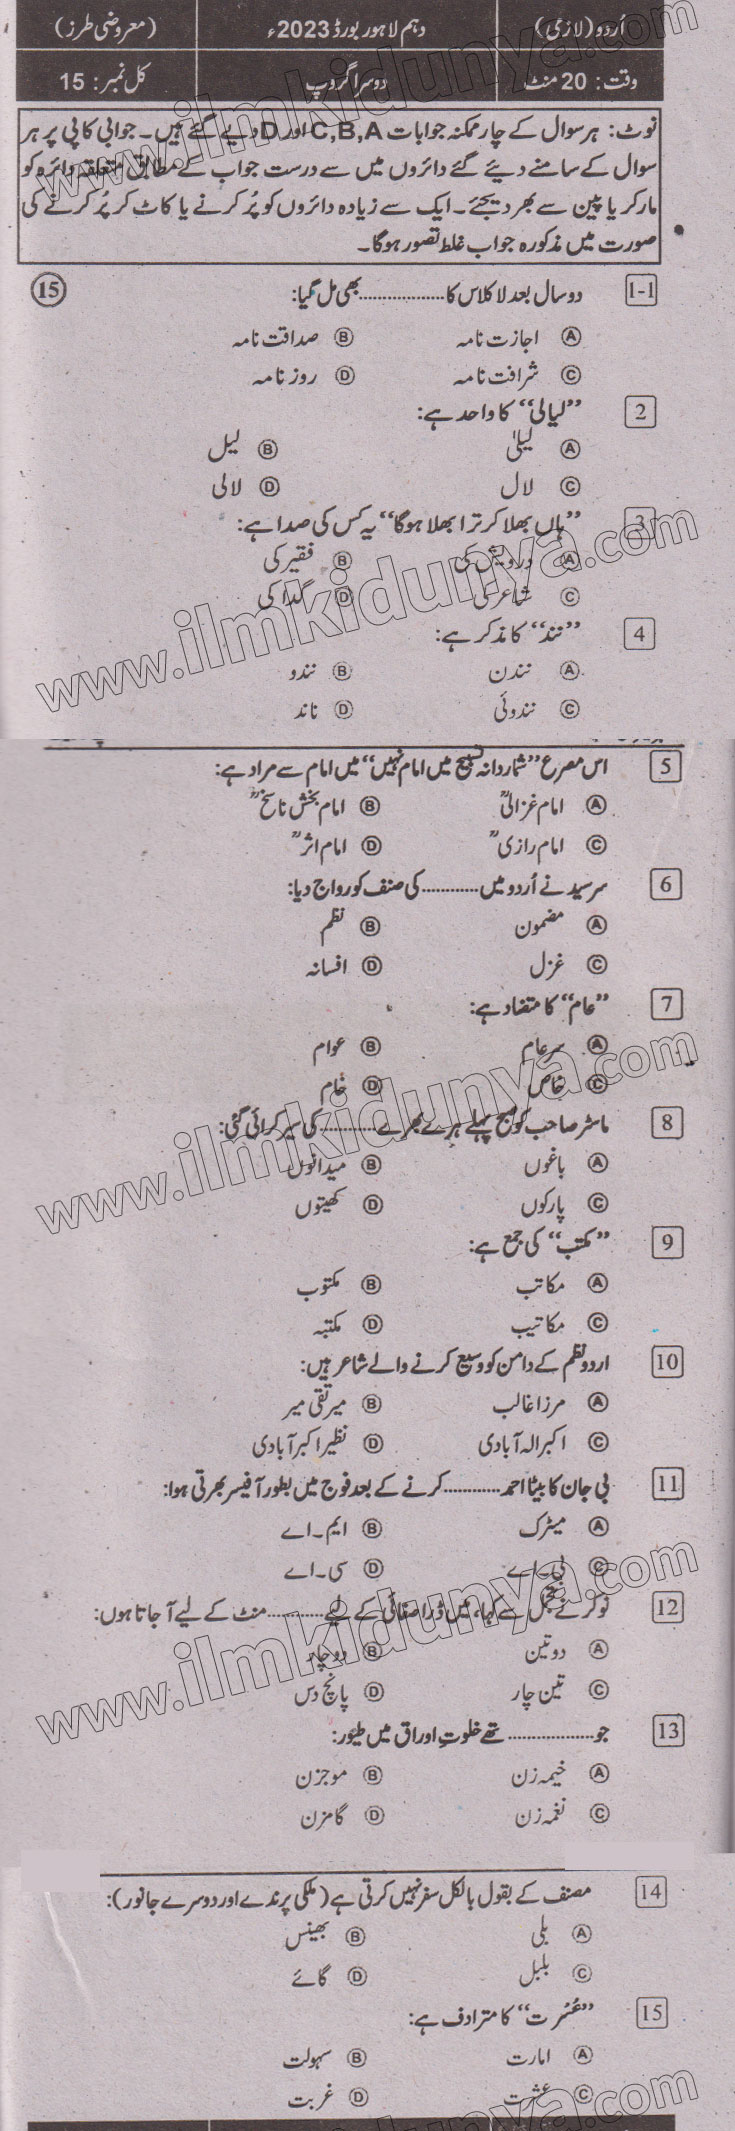 اُردو (لازمی) دہم لاہور بورڈ 2023ء (معروضی طرز)
وقت: 20 منٹ دوسرا گروپ کل نمبر: 15
نوٹ: ہر سوال کے چار ممکنہ جوابات C,B,A اور D دیے گئے ہیں۔ جوابی کاپی پر ہر
سوال کے سامنے دیئے گئے دائروں میں سے درست جواب کے مطابق متعلقہ دائرہ کو
مارکر یا پین سے بھر دیجئے۔ ایک سے زیادہ دائروں کو پُر کرنے یا کاٹ کر پُر کرنے کی
صورت میں مذکورہ جواب غلط تصور ہوگا۔
1-1 دو سال بعد لا کلاس کا .................... بھی مل گیا: 15
A اجازت نامہ B صداقت نامہ
C شرافت نامہ D روزنامہ
2 ’’لیالی‘‘ کا واحد ہے:
A لیلیٰ B لیل
C لال D لالی
3 ’’ہاں بھلا کر ترا بھلا ہوگا‘‘ یہ کس کی صدا ہے:
A درویش کی B فقیر کی
C شاعر کی D گدا کی
4 ’’نند‘‘ کا مذکر ہے:
A نندن B نندو
C نندوئی D ناند
5 اس مصرع ’’شمار دانہ تسبیح میں امام نہیں‘‘ میں امام سے مراد ہے:
A امام غزالیؒ B امام بخش ناسخؒ
C امام رازیؒ D امام اثرؒ
6 سرسید نے اُردو میں ............ کی صنف کو رواج دیا:
A مضمون B نظم
C غزل D افسانہ
7 ’’عام‘‘ کا متضاد ہے:
A سرعام B عوام
C خاص D خام
8 ماسٹر صاحب کو صبح پہلے ہرے بھرے ............ کی سیر کرائی گئی:
A باغوں B میدانوں
C پارکوں D کھیتوں
9 ’’مکتب‘‘ کی جمع ہے:
A مکاتب B مکتوب
C مکاتیب D مکتبہ
10 اردو نظم کے دامن کو وسیع کرنے والے شاعر ہیں:
A مرزا غالب B میر تقی میر
C اکبر الہ آبادی D نظیر اکبر آبادی
11 بی جان کا بیٹا احمد ............ کرنے کے بعد فوج میں بطور آفیسر بھرتی ہوا:
A میٹرک B ایم۔اے
C بی۔اے D سی۔اے
12 نوکر نے سنبل سے کہا، میں ذرا صفائی کے لیے ............ منٹ کے لیے آ جاتا ہوں:
A دو تین B دو چار
C تین چار D پانچ دس
13 جو .................... تھے خلوتِ اوراق میں طیور:
A خیمہ زن B موجزن
C نغمہ زن D گامزن
14 مصنف کے بقول بالکل سفر نہیں کرتی ہے (ملکی پرندے اور دوسرے جانور):
A بلی B بھینس
C بلبل D گائے
15 ’’عُسرت‘‘ کا مترادف ہے:
A امارت B سہولت
C عشت D غربت
www.ilmkidunya.com
www.ilmkidunya.com
www.ilmkidunya.com
www.ilmkidunya.com